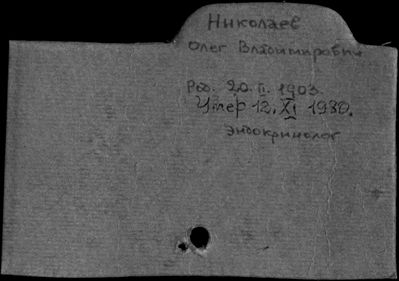 Николаев
Олег Владимирович
Род. 20. II. 1903.
Умер 12. XI 1980.
эндокринолог